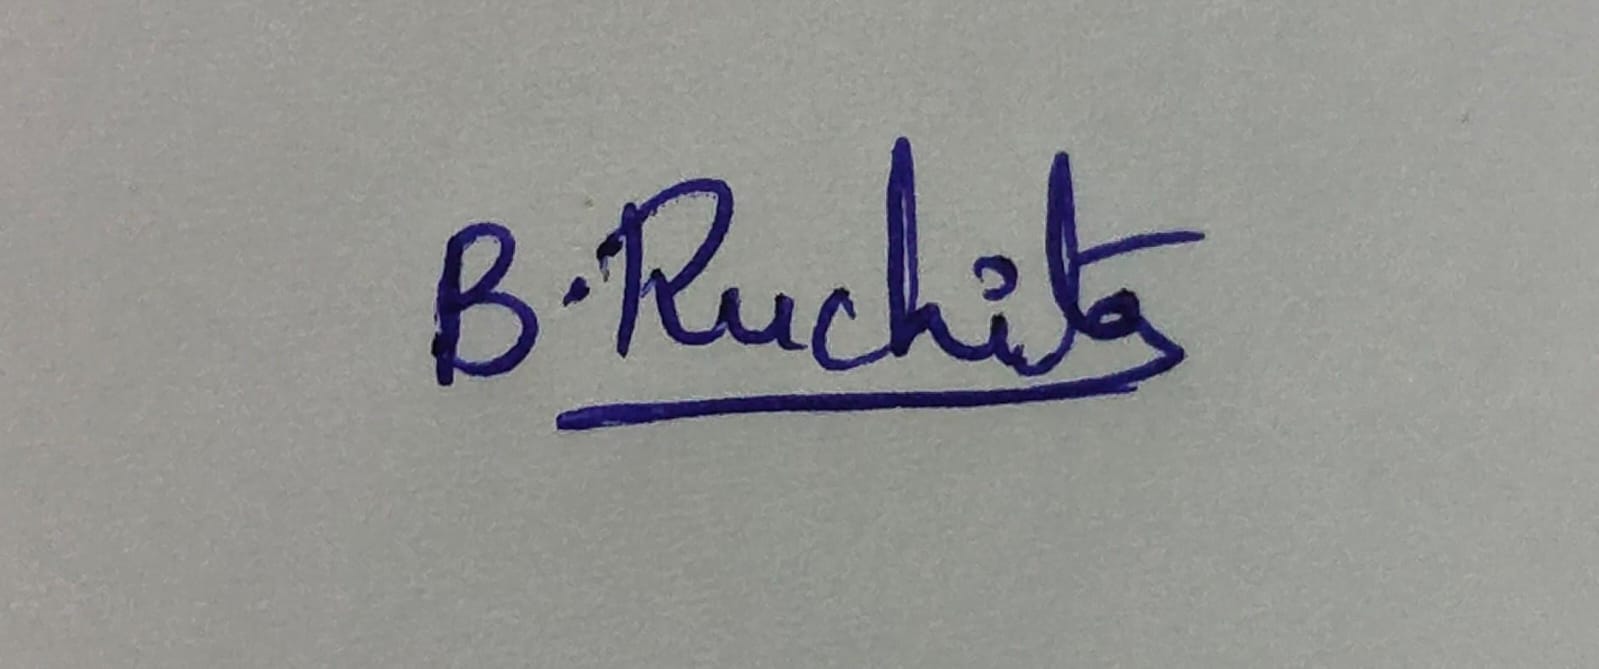 B. Ruchita